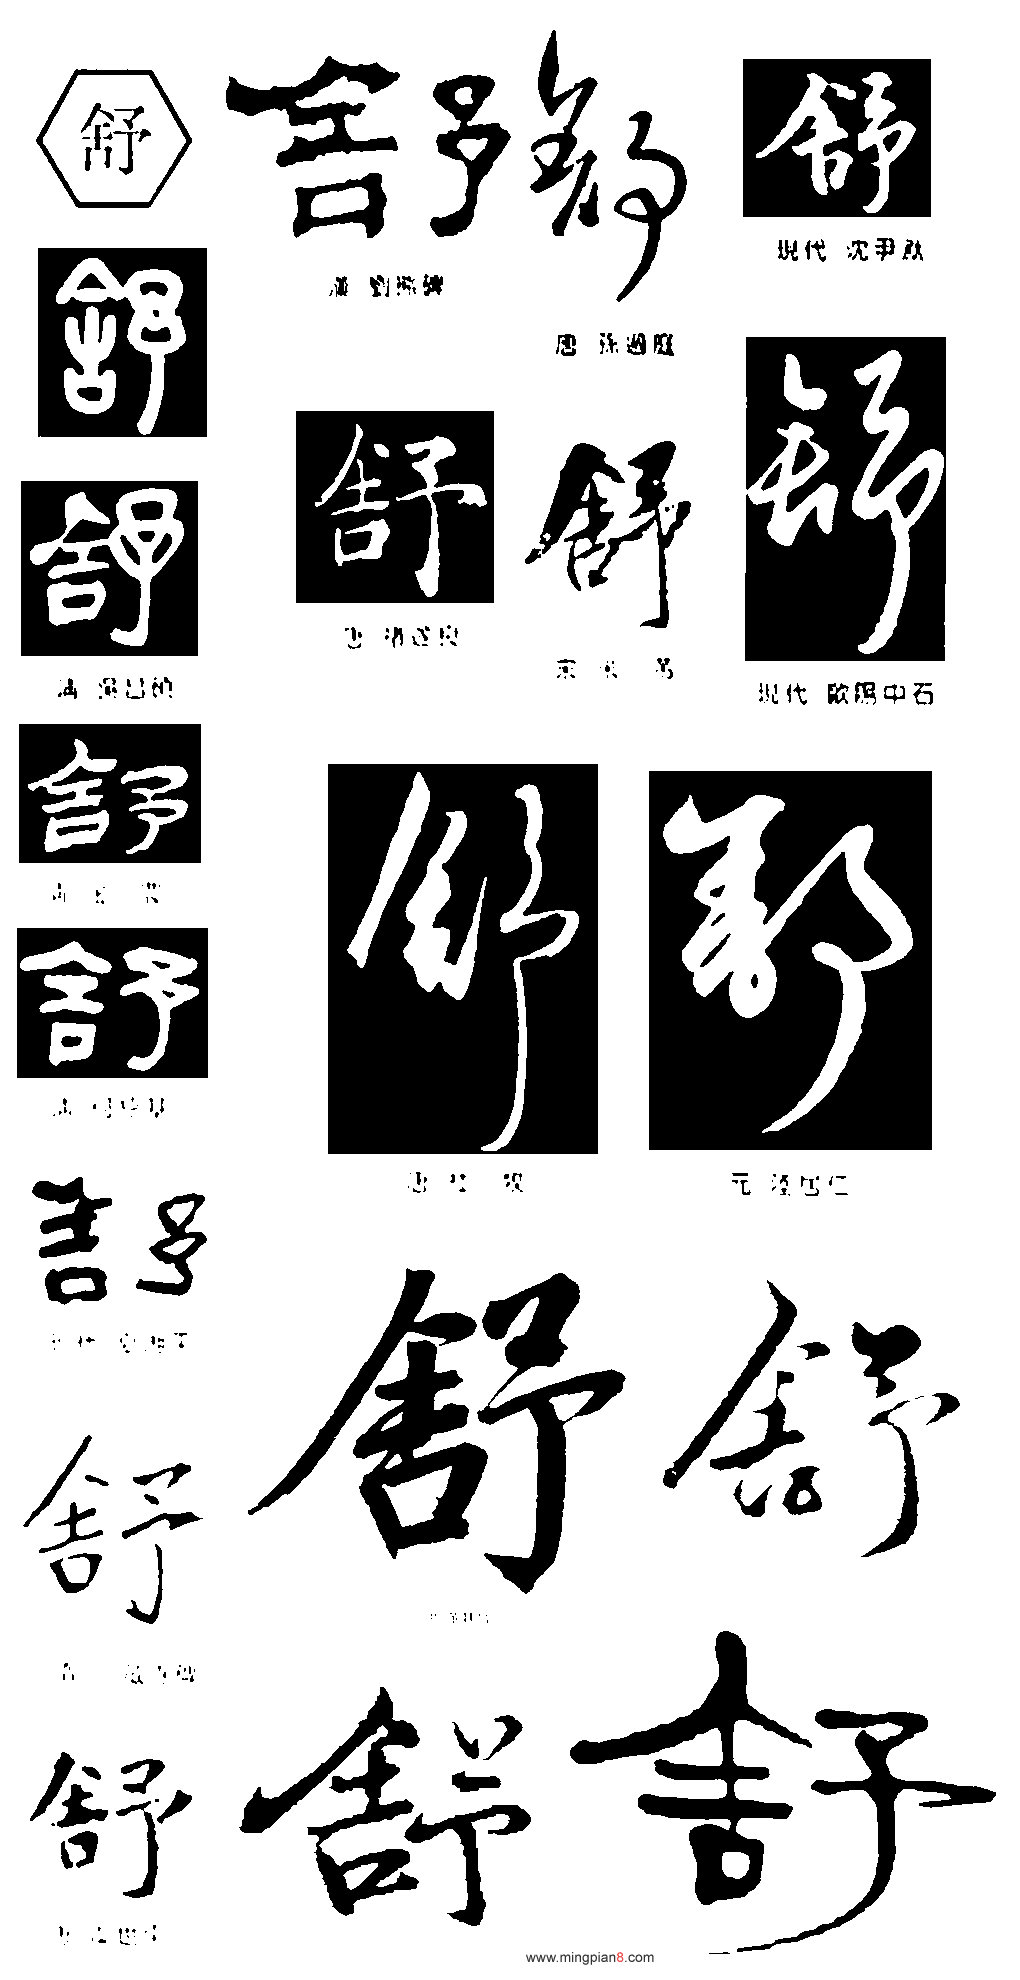 舒
舒
舒
舒
現代 沈尹默
漢 劉熊碑
唐 孫過庭
舒
舒
舒
舒
舒
唐 褚遂良
宋 米 芾
現代 歐陽中石
清
舒
舒
舒
舒
唐 杜 牧
元 陸居仁
清
舒
現代
舒
舒
舒
舒
舒
舒
www.mingpian8.com